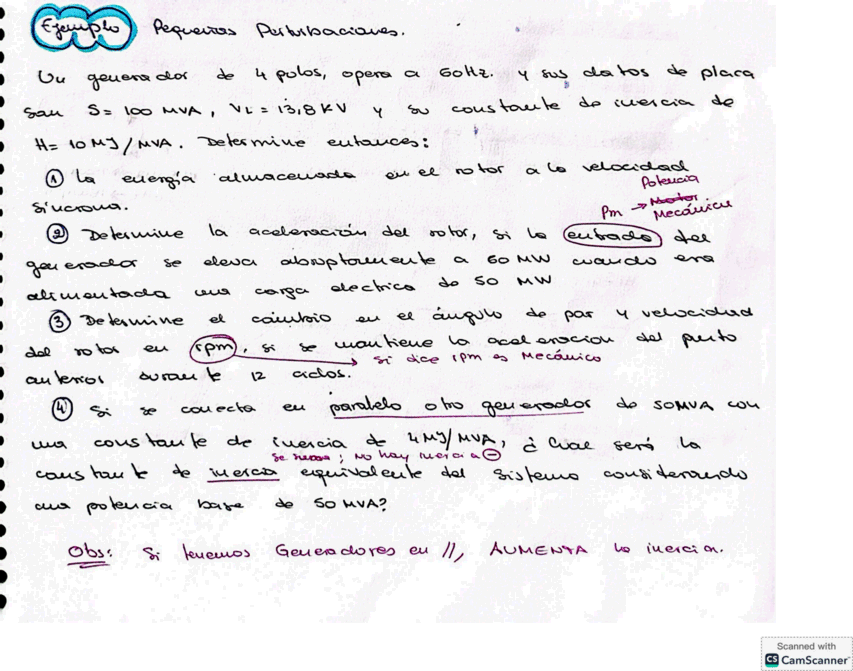 Ejemplo Pequeñas Perturbaciones.
Un generador de 4 polos, opera a 60Hz. y sus datos de placa
son S= 100 MVA, VL = 13,8 KV y su constante de inercia de
H= 10 MJ/MVA. Determine entonces:
① La energía almacenada en el rotor a la velocidad
Potencia
síncrona.
Pm → Mecánica
② Determine la aceleración del rotor, si la entrada del
generador se eleva abruptamente a 60 MW cuando era
alimentada una carga electrica de 50 MW
③ Determine el cambio en el ángulo de par y velocidad
del rotor en rpm, si se mantiene la aceleracion del punto
si dice rpm es Mecánico
anterior durante 12 ciclos.
④ Si se conecta en paralelo otro generador de 50MVA con
una constante de inercia de 4MJ/MVA, ¿Cual será la
se suman; No hay inercia ⊖
constante de inercia equivalente del sistema considerando
una potencia base de 50 MVA?
Obs: Si tenemos Generadores en //, AUMENTA la inercia.
Scanned with
CS CamScanner